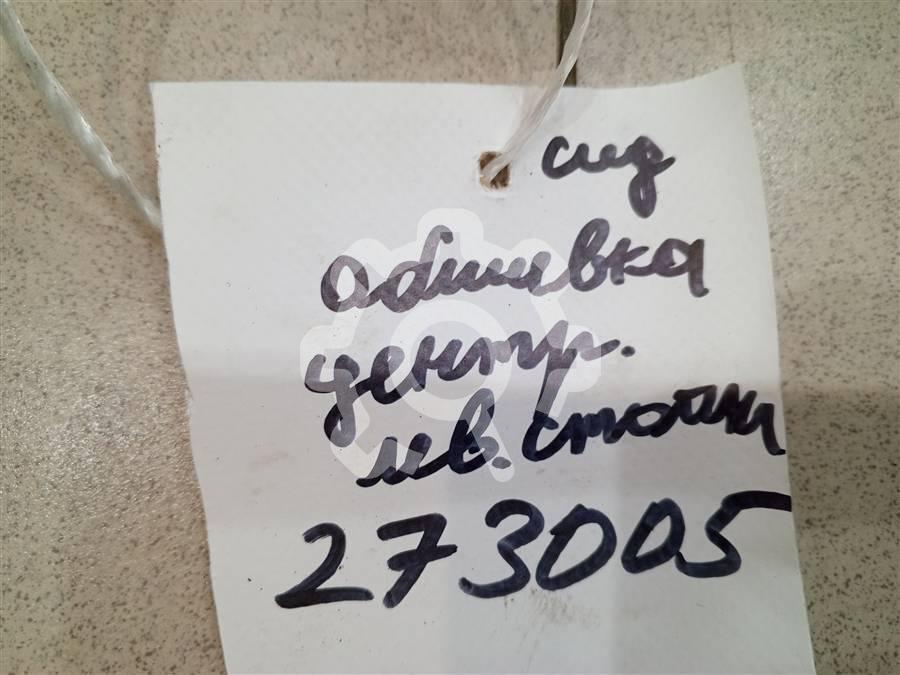 сид
обшивка
центр.
лев. стойки
273005